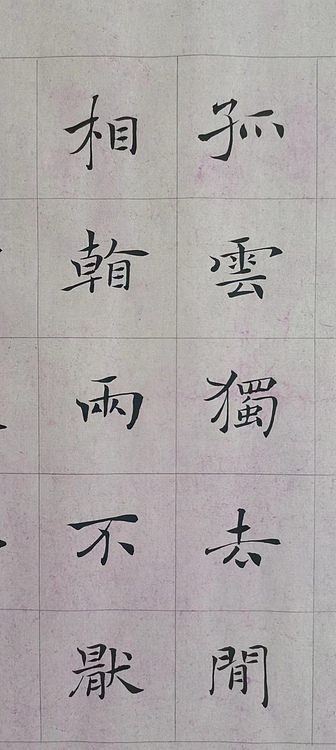 孤雲獨去閒
相兩不猒